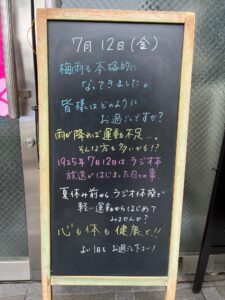 7月12日(金)
梅雨も本格的に
なってきました。
皆様はどのように
お過ごしですか?
雨が降れば運動不足…。
そんな方も多いかも!?
1925年7月12日は、ラジオ本
放送がはじまった日との事
夏休み前からラジオ体操で
軽い運動からはじめて
みませんか?
心も体も健康で!!
よい1日をお過ごし下さい!